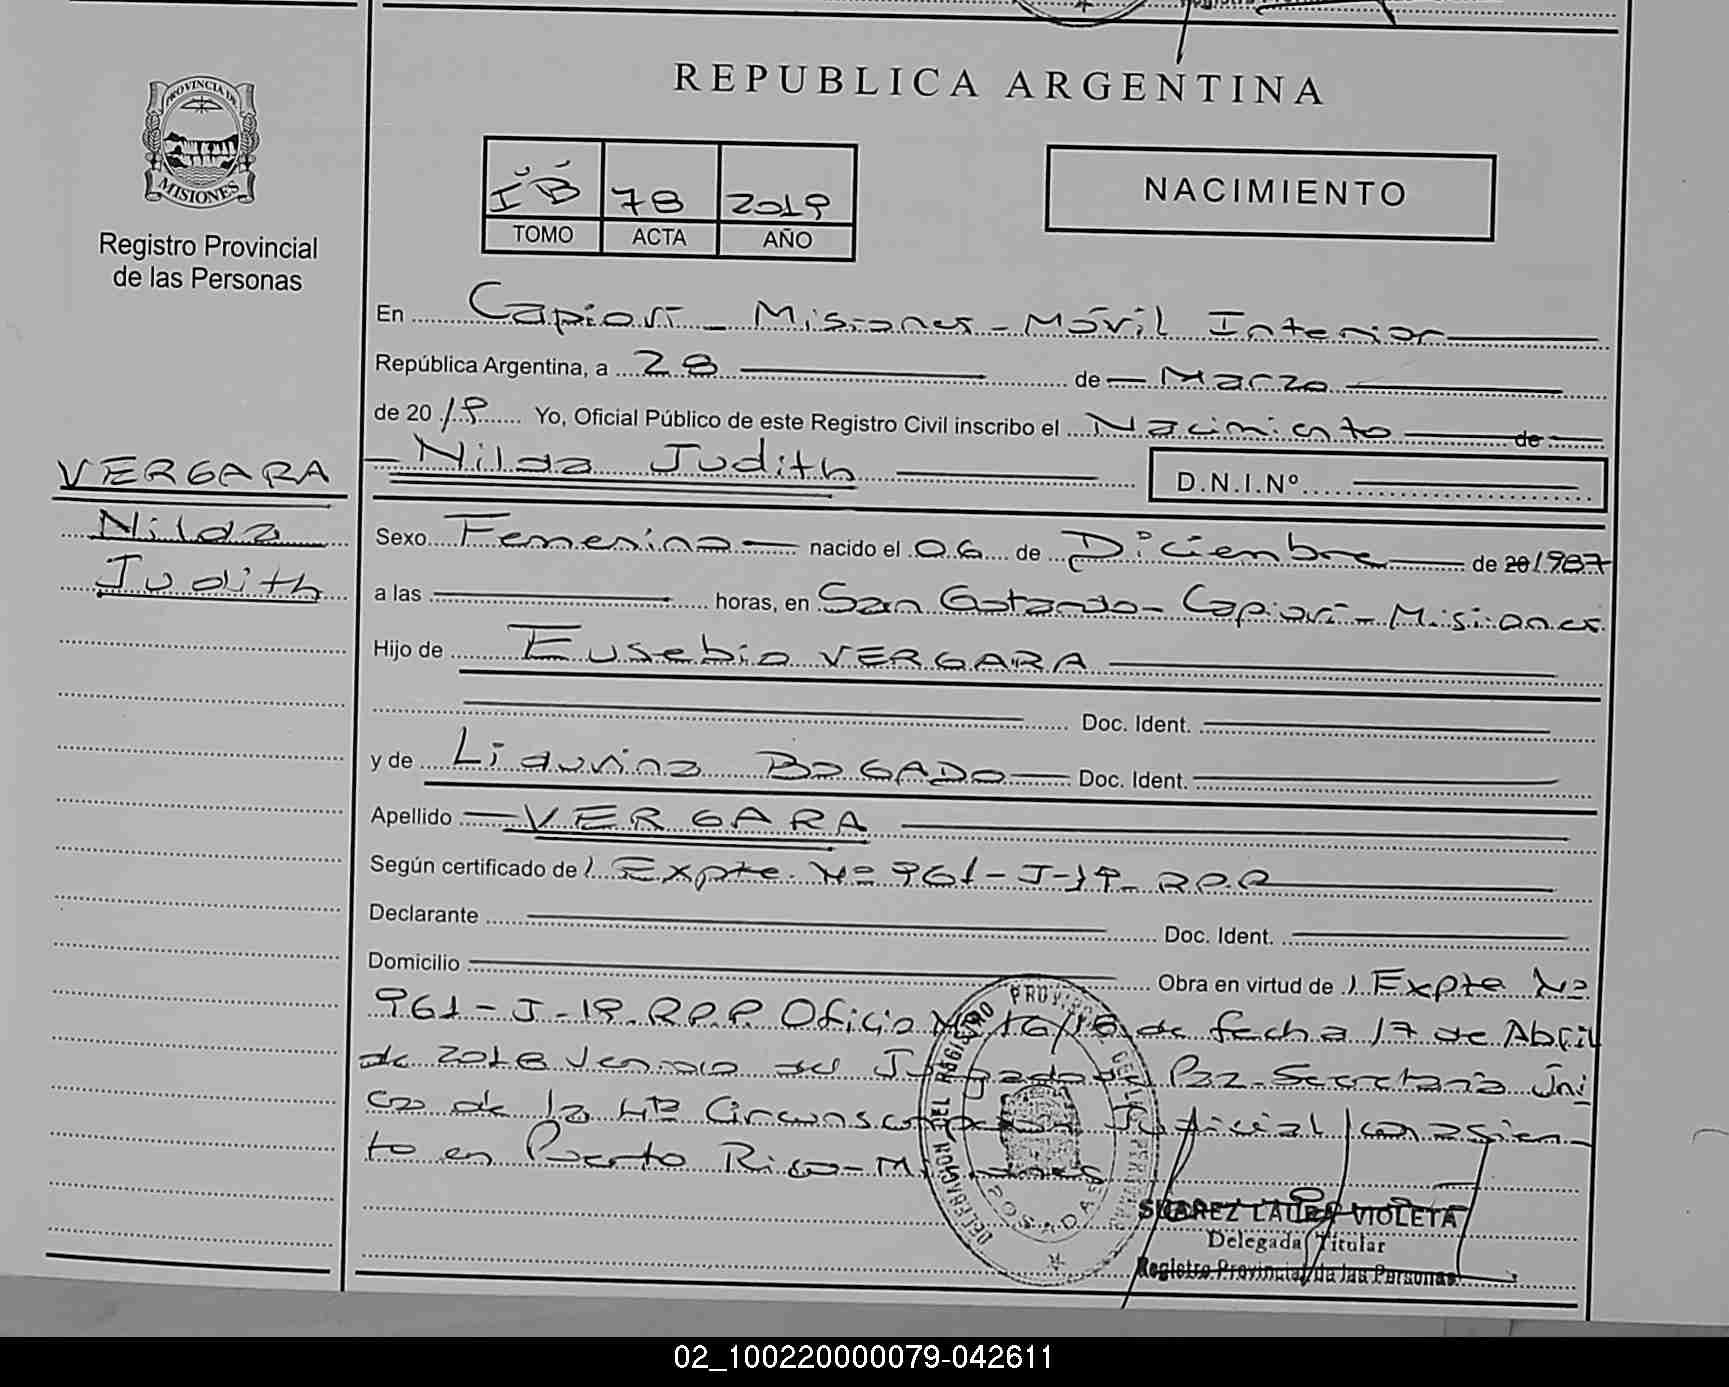 REPUBLICA ARGENTINA
PROVINCIA DE
MISIONES
Registro Provincial
de las Personas
I B 78 2019
TOMO ACTA AÑO
NACIMIENTO
En Capioví - Misiones - Móvil Interior
República Argentina, a 28 de Marzo
de 2019 Yo, Oficial Público de este Registro Civil inscribo el Nacimiento de
Nilda Judith D.N.I.Nº
VERGARA
Nilda
Judith
Sexo Femenino nacido el 06 de Diciembre de 20 1987
a las horas, en San Gotardo - Capioví - Misiones
Hijo de Eusebio VERGARA
Doc. Ident.
y de Liduvina BOGADO Doc. Ident.
Apellido VERGARA
Según certificado de Expte. Nº 961-J-19- R.P.P.
Declarante Doc. Ident.
Domicilio Obra en virtud de Expte Nº
961-J-19. R.P.P. Oficio Nº 16/18 de fecha 17 de Abril
de 2018 venido del Juzgado de Paz - Secretaría Úni
ca de la 4ta Circunscripción Judicial con asien-
to en Puerto Rico - Misiones
DELEGACION DEL REGISTRO PROVINCIAL DE LAS PERSONAS
POSADAS
SUAREZ LAURA VIOLETA
Delegada Titular
Registro Provincial de las Personas
02_100220000079-042611